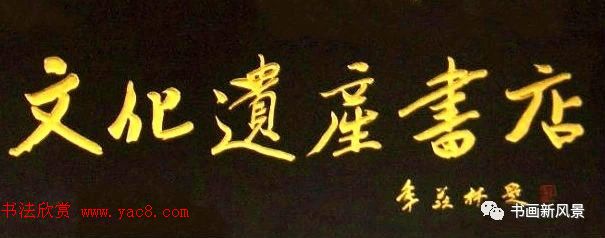 文化遺産書店
季羡林題
书法欣赏 www.yac8.com
书画新风景